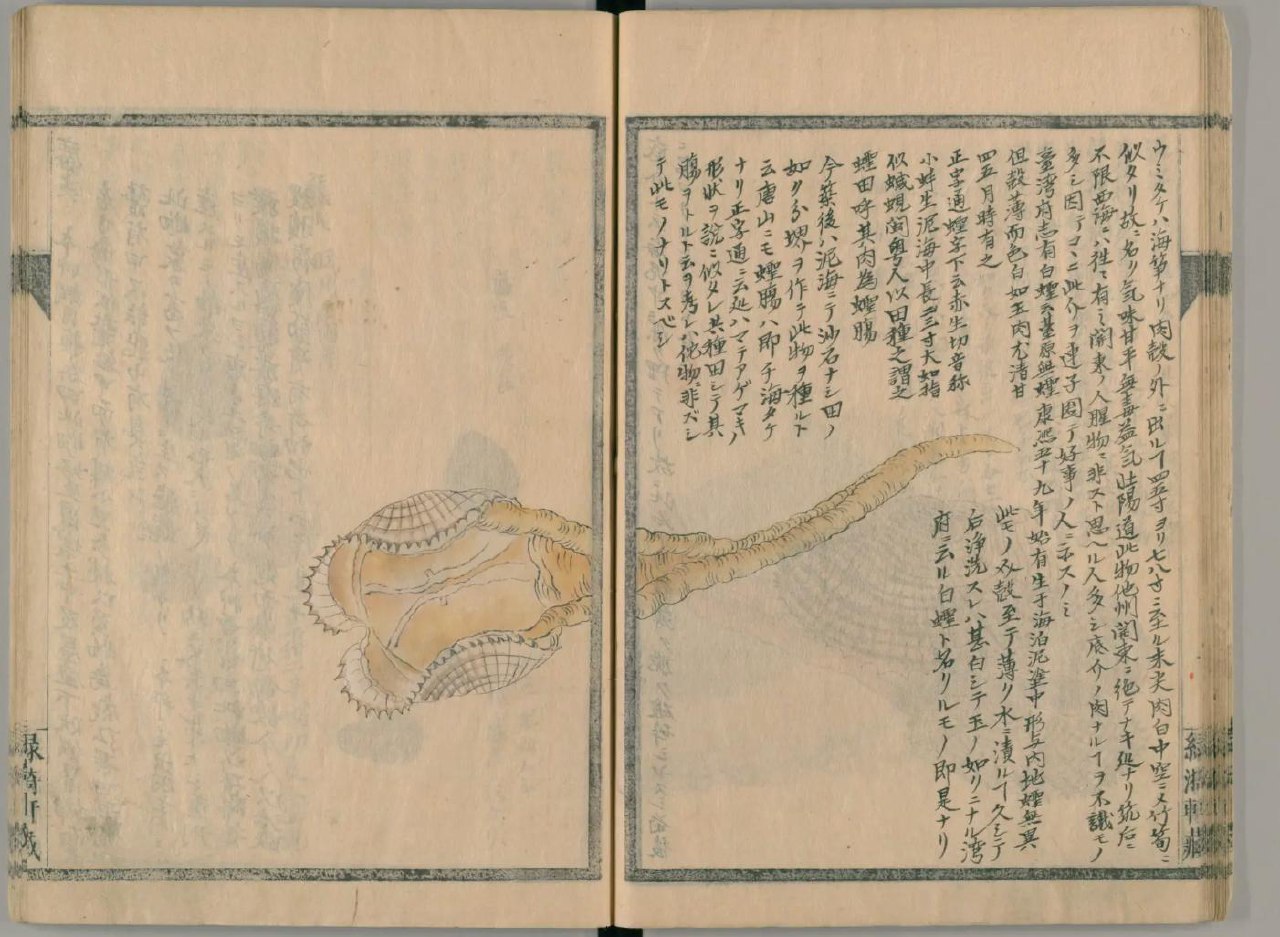 ウミタケハ海筍ナリ肉殻ノ外ニ出ルヿ四五寸ヨリ七八寸ニ至ル末尖肉白中空ニメ竹筍ニ
似タリ故ニ名リ気味甘平無毒益気壮陽道此物他州関東ニ絶テナキ処ナリ筑后ニ
不限西海ニハ往々有ミ関東ノ人腥物ニ非スト思ヘル人多シ底介ノ肉ナルヿヲ不識モノ
多シ因テコヽニ此介ヲ連子図テ好事ノ人ニ示スノミ
臺湾府志有白蟶云臺原無蟶康熙五十九年始有生于海泊泥塗中形与内地蟶無異
但殻薄而色白如玉肉尤清甘
四五月時有之
正字通蟶字下云赤生切音称
小蚌生泥海中長二三寸大如指
似蝛蜆閩粤人以田種之謂之
蟶田呼其肉為蟶腸
今築後ハ泥海ニテ砂石ナシ田ノ
如リ分堺ヲ作テ此物ヲ種ルト
云唐山ニモ蟶腸ハ即チ海タケ
ナリ正字通ニ云処ハマテアゲマキノ
形状ヲ説ニ似タレ共種田シテ其
腸ヲトルト云ヲ考レハ佗物ニ非ズシ
テ此モノナリトスベシ
此モノ介殻至テ薄リ水ニ漬ルヿ久シテ
后浄洗スレハ甚白シテ玉ノ如リニナル湾
府ニ云ル白蟶ト名リルモノ即是ナリ